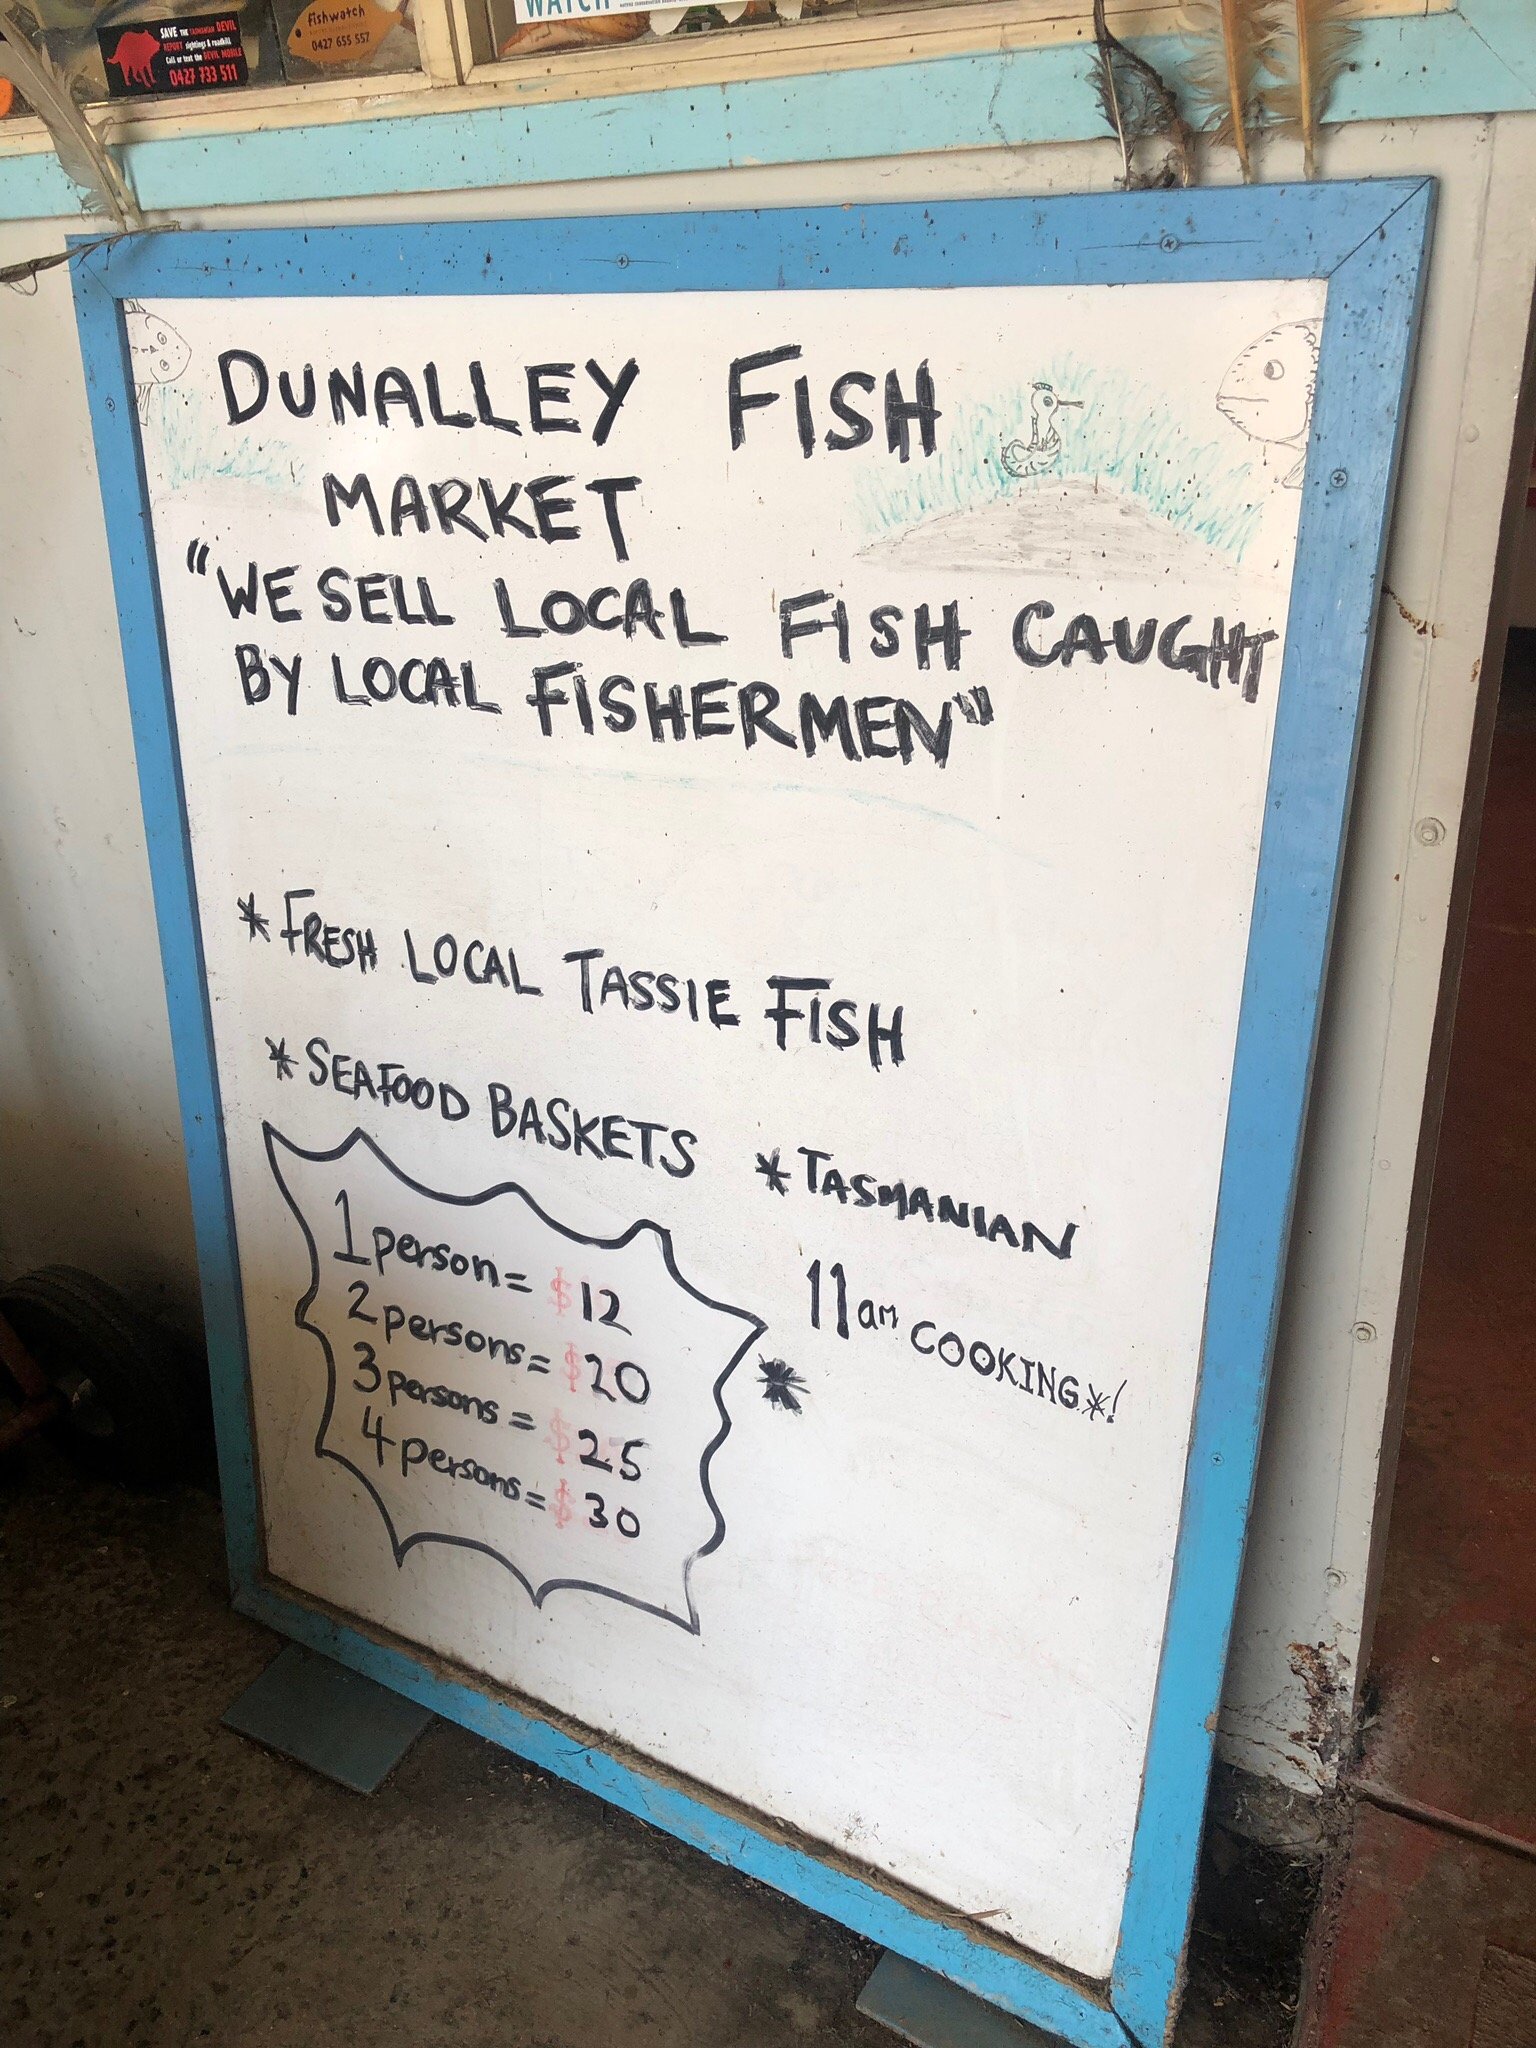 SAVE THE TASMANIAN DEVIL
REPORT sightings & roadkill
Call or text the DEVIL MOBILE
0427 733 511
fishwatch
0427 655 557
WATCH
DUNALLEY FISH
MARKET
"WE SELL LOCAL FISH CAUGHT
BY LOCAL FISHERMEN"
*FRESH LOCAL TASSIE FISH
*SEAFOOD BASKETS
1 person = $12
2 persons = $20
3 persons = $25
4 persons = $30
*TASMANIAN
11am COOKING*!
*